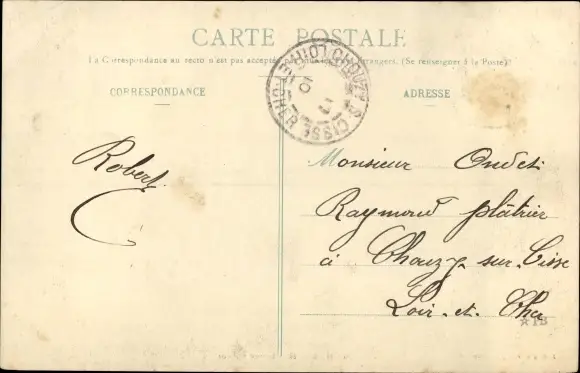 CARTE POSTALE
La Correspondance au recto n'est pas acceptée par tous les pays étrangers. (Se renseigner à la Poste)
CORRESPONDANCE
ADRESSE
CHOUZY-S-CISSE
LOIR-ET-CHER
Robert
Monsieur Oudet
Raymond plâtrier
à Chouzy-sur-Cisse
Loir-et-Cher